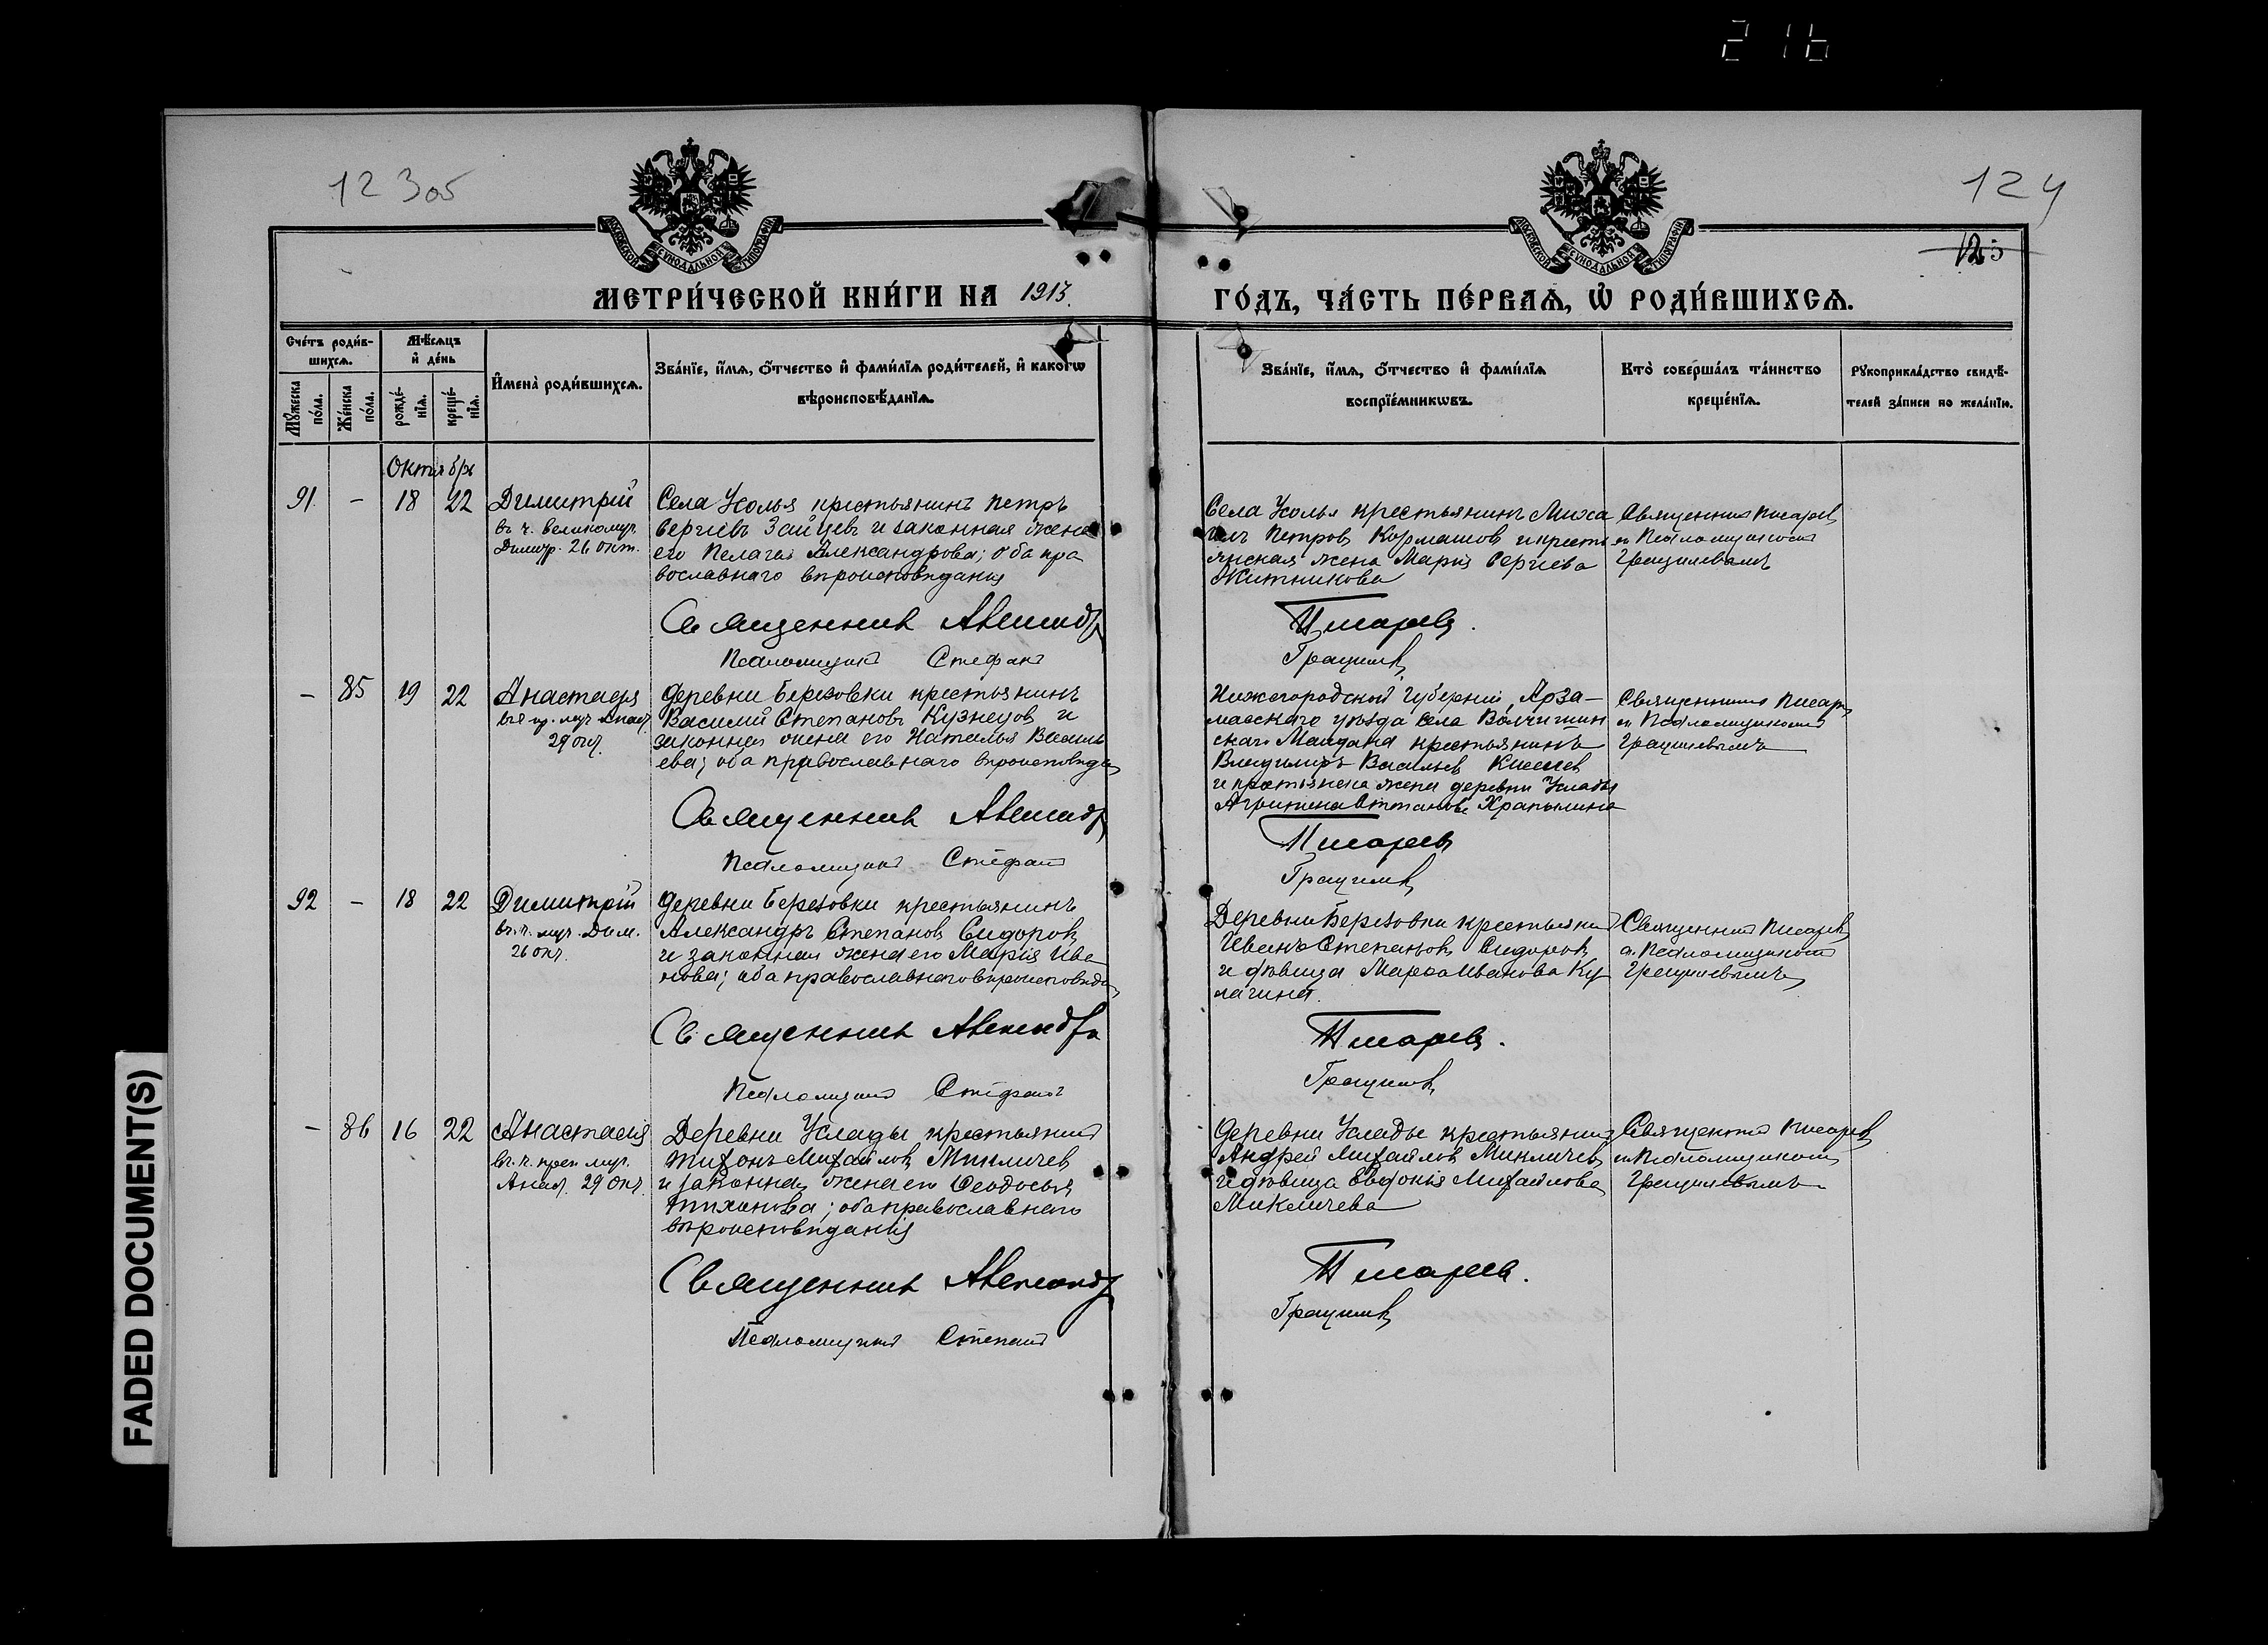 216
12 3об
124
125
МОСКОВСКОЙ СѴНОДАЛЬНОЙ ТИПОГРАФІИ
МОСКОВСКОЙ СѴНОДАЛЬНОЙ ТИПОГРАФІИ
МЕТРИ́ЧЕСКОЙ КНИ́ГИ НА 1913.
ГО́ДЪ, ЧА́СТЬ ПЕ́РВАѦ, Ѡ҆ РОДИ́ВШИХСѦ.
Сче́тъ роди́в-
шихсѧ.
Мѣ́сѧцъ
и҆ де́нь
Мꙋ́жеска
по́ла.
Же́нска
по́ла.
рожде́-
нїѧ.
креще́-
нїѧ.
И҆мена̀ роди́вшихсѧ.
Зва́нїе, и҆́мѧ, ѻ҆́тчество и҆ фами́лїѧ роди́телей, и҆ како́гѡ
вѣроисповѣ́данїѧ.
Зва́нїе, и҆́мѧ, ѻ҆́тчество и҆ фами́лїѧ
воспрїе́мникѡвъ.
Кто̀ соверша́лъ та́инство
креще́нїѧ.
Рꙋкоприкла́дство свидѣ́-
телей за́писи по жела́нїю.
Октябрь
91. - 18 22
Димитрій
въ ч. великомуч.
Димитр. 26 окт.
Села Усолья крестьянинъ Петръ
Сергіевъ Зайцевъ и законная жена
его Пелагея Александрова; оба пра
вославнаго вѣроисповѣданія
Священник Александр
Псаломщикъ Стефанъ
Села Усолья крестьянинъ Миха
илъ Петровъ Кормашов и кресть
янская жена Марія Сергіева
Житникова
Писарев.
Грацилевъ
Священник Писарев
съ Псаломщиком
Грацилевымъ
- 85 19 22
Анастасія
29 окт.
Деревни Березовки крестьянинъ
Василий Степановъ Кузнецов и
законная жена его Наталья Василь
ева; оба православнаго вѣроисповѣдан
Священник Александр
Псаломщикъ Стефан
Нижегородской губерніи, Арза-
масскаго уѣзда села
скаго Майдана крестьянинъ
Владимиръ Васильев Киселев
и крестьянска жена деревни Услады
Агрипена Степанова Храпылина
Писарев
Грацилевъ
Священникъ Писарев
съ Псаломщиком
Грацилевымъ
92 - 18 22
Димитрій
въ ч. муч. Дим.
26 окт.
Деревни Березовки крестьянинъ
Александръ Степанов Сидоров
и законная жена его Марія Ива
нова; оба православнаго вѣроисповѣдан
Священник Александр
Псаломщик Стефанъ
Деревни Березовки крестьянин
Иванъ Степанов Сидоров
и дѣвица Марѳа Иванова Ку
лагина.
Писарев.
Грацилев
Священник Писарев
съ Псаломщиком
Грацилевымъ
- 86 16 22
Анастасія
въ ч. преп. муч.
Анаст. 29 окт.
Деревни Услады крестьянин
Тихонъ Михайлов Микличев
и законная жена его Ѳеодосья
Тихонова; оба православнаго
вѣроисповѣданія
Священник Александр
Псаломщикъ Степан
Деревни Услады крестьянин
Андрей Михайлов Микличев
и дѣвица Евдокія Михайлова
Микличева
Писарев.
Грацилев
Священник Писарев
съ Псаломщиком
Грацилевымъ
FADED DOCUMENT(S)